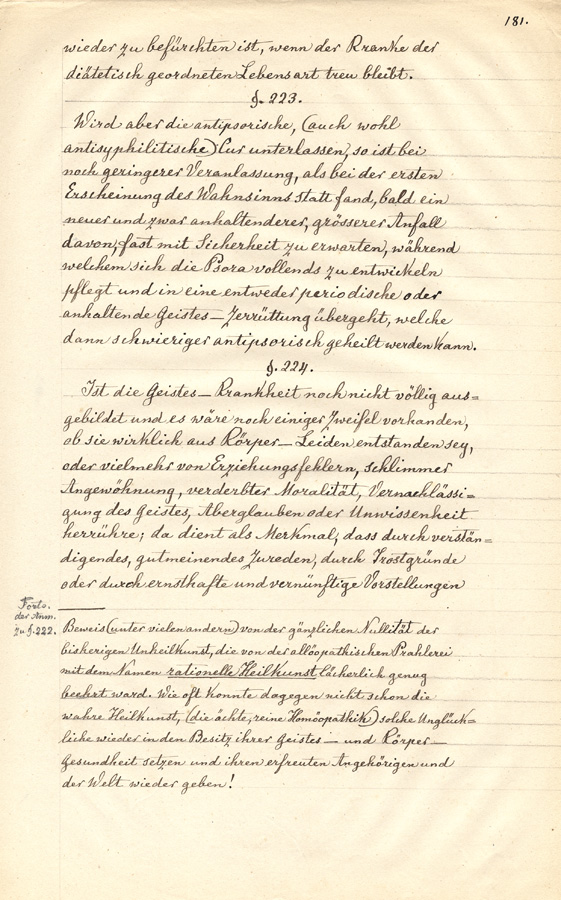 181.
wieder zu befürchten ist, wenn der Kranke der
diätetisch geordneten Lebensart treu bleibt.
§. 223.
Wird aber die antipsorische, (auch wohl
antisyphilitische) Cur unterlassen, so ist bei
noch geringerer Veranlassung, als bei der ersten
Erscheinung des Wahnsinns statt fand, bald ein
neuer und zwar anhaltenderer, grösserer Anfall
davon, fast mit Sicherheit zu erwarten, während
welchem sich die Psora vollends zu entwickeln
pflegt und in eine entweder periodische oder
anhaltende Geistes-Zerrüttung übergeht, welche
dann schwieriger antipsorisch geheilt werden kann.
§. 224.
Ist die Geistes-Krankheit noch nicht völlig aus=
gebildet und es wäre noch einiger Zweifel vorhanden,
ob sie wirklich aus Körper-Leiden entstanden sey,
oder vielmehr von Erziehungsfehlern, schlimmer
Angewöhnung, verderbter Moralität, Vernachlässi=
gung des Geistes, Aberglauben oder Unwissenheit
herrühre; da dient als Merkmal, dass durch verstän=
digendes, gutmeinendes Zureden, durch Trostgründe
oder durch ernsthafte und vernünftige Vorstellungen
Forts.
der Anm.
zu §. 222.
Beweis (unter vielen andern) von der gänzlichen Nullität der
bisherigen Unheilkunst, die von der allöopathischen Prahlerei
mit dem Namen rationelle Heilkunst lächerlich genug
beehrt ward. Wie oft konnte dagegen nicht schon die
wahre Heilkunst, (die ächte, reine Homöopathik) solche Unglück=
liche wieder in den Besitz ihrer Geistes- und Körper-
Gesundheit setzen und ihren erfreuten Angehörigen und
der Welt wieder geben!